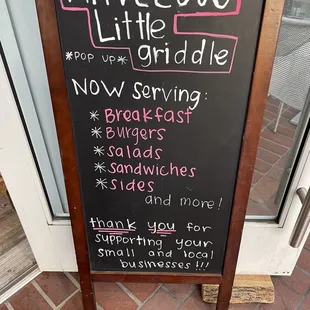 Little
*Pop up* griddle
Now serving:
* Breakfast
* Burgers
* Salads
* Sandwiches
* Sides
and more!
thank you for
supporting your
small and local
businesses!!!